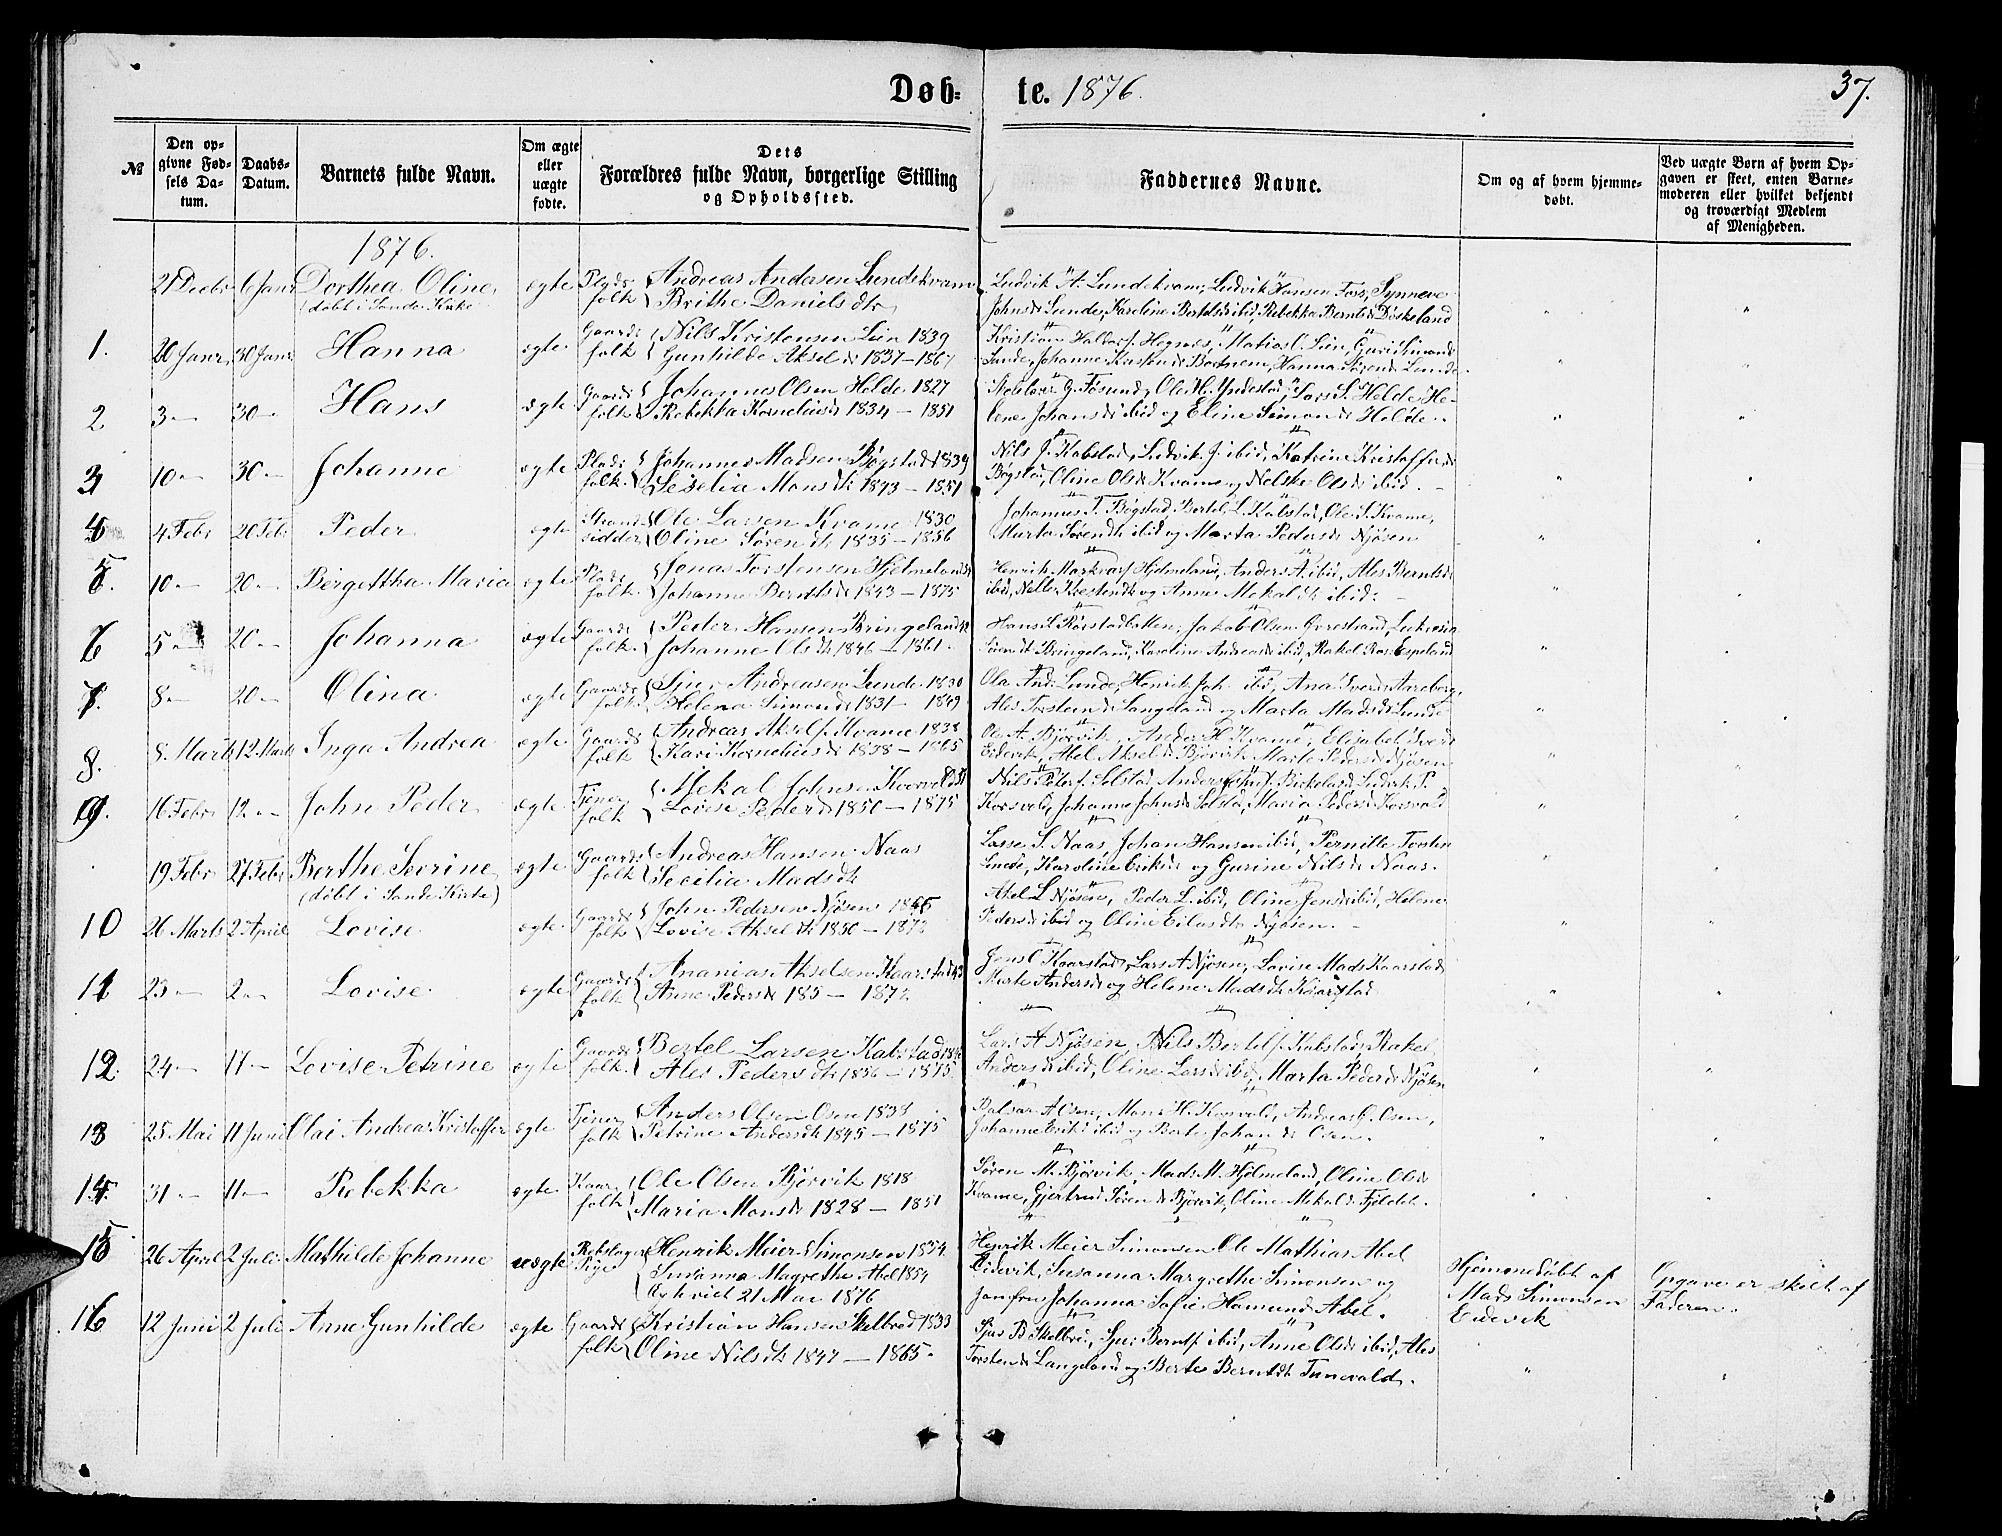 Døb-
te. 1876.
37.
№
Den op-
givne Fød-
sels Da-
tum.
Daabs-
Datum.
Barnets fulde Navn.
Om ægte
eller
uægte
fødte.
Dets
Forældres fulde Navn, borgerlige Stilling
og Opholdssted.
Faddernes Navne.
Om og af hvem hjemme-
døbt.
Ved uægte Børn af hvem Op-
gaven er skeet, enten Barne-
moderen eller hvilket bekjendt
og troværdigt Medlem
af Menigheden.
1876.
21 Decbr 6 Janr Dorthea Oline ægte Plads Andreas Andersen Lundekvam
(døbt i Sande Kirke folk Brithe Daniels dtr
Ludvik A. Lundekvam, Ludvik Hansen Foss, Synneve
Johnsd Lunde, Karoline Bertelsd ibid, Rebekka Berntsd Døskeland
1. 20 Janr 30 Janr Hanna ægte Gaard Nils Kristensen Lien 1839
folk Gunhilde Akselsd 1837-1867
Kristian Halvorf. Hegnes, Matias L. Lien, Guri Simond
Sande, Johanne Kristensd , Hanna Sørensd Lunde
2 3 — 30 — Hans ægte Gaard Johannes Olsen Helde 1827
folk Rebekka Korneliusd 1834 — 1851
G. Føsund, Ole H. Yndestad, Lars S. Helde, He-
lene Johansd ibid og Eline Simonsd Helde.
3 10 — 30 — Johanne ægte Plads Johannes Madsen Bøgstad 1839
folk Seselia Monsdtr 1843 — 1851
Nils J. Kalstad, Ludvik J. ibid, Katrine Kristoffersd
Bøgstad, Oline Olsd Kvame og Nelske Olsd ibid.
4 4 Febr 20 Febr Peder ægte Strand Ole Larsen Kvame 1830
sidder Oline Sørensdtr 1835 — 1856
Johannes T. Bøgstad, Bertel L. Kalstad, Ole S. Kvame,
Marta Sørensdtr ibid og Marta Pedersd Njøsen
5. 10 — 20 — Bergettha Maria ægte Plads Jonas Torstensen Hjelmeland
folk Johanne Berntsd 1843 — 1875
Henrik Markvarf. Hjelmeland, Anders A. ibid, Ales Berntsd
ibid, Nelle Kristensd og Anne Mekalsd ibid.
6 5 — 20 — Johanna ægte Gaard Peder Hansen Bringeland
folk Johanne Olsdtr 1846 — 1861
Hans L. Rørstadbakken, Jakob Olsen Øvrestrand, Lukresia
Sørensdtr Bringeland, Karoline Andreasd ibid, Rakel Rasd Espeland
7. 8 — 20 — Olina ægte Gaard Sjur Andreasen Lunde 1830
folk Helena Simonsd 1831 — 1849
Ola And. Lunde, Henrik Joh. ibid, Ana Iversd Aareberg,
Ales Torstensd Langeland og Marta Madsd Lunde
8. 8. Marts 12 Marts Inga Andrea ægte Gaard Andreas Akself. Kvame 1838
folk Kari Korneliusd 1838 — 1865
Ole A. Bjørvik, Anders H. Kvame, Elisabet Iversd
Eidevik, Abel Akselsd Bjørvik, Marte Pedersd Njøsen
9. 16 Febr 12 — John Peder ægte Tjener Mekal Johnsen Korsvold
folk Lovise Pedersd 1850 — 1875
Nils Peterf. Solstad, Anders Johnf. Birkeland, Ludvik P.
Korsvold, Johanne Johnsd Solstad, Maria Pedersd Korsvold
19 Febr 27 Febr Berthe Severine ægte Gaards Andreas Hansen Naas
(døbt i Sande Kirke) folk Secilia Madsdtr
Lasse S. Naas, Johan Hansen ibid, Pernille Torsten
Lunde, Karoline Eriksd og Gurine Nilsd Naas.
10 26 Marts 2 April Lovise ægte Gaard John Pedersen Njøsen
folk Lovise Akselsdtr 1850 — 1872
Aksel L Njøsen, Peder L. ibid, Oline Jensd ibid, Helene
Pedersd ibid og Oline Eilasdtr Njøsen.
11 23 — 2 — Lovise ægte Gaards Ananias Akselsen Kaarstad
folk Anne Pedersd 185 — 1872
Jens O. Kaarstad, Lars A Njøsen, Lovise Mads Kaarstad
Marte Andersd og Helene Madsdtr Kaarstad
12. 24 — 11 — Lovise Petrine ægte Gaard Bertel Larsen Kalstad
folk Ales Pedersdtr 1856 — 1875
Lars A Njøsen, Nils Bertelf. Kalstad, Rakel
Andersd ibid, Oline Larsd ibid, Marta Pedersd Njøsen
13 25 Mai 11 Juni Olai Andreas Kristoffer ægte Tjener Anders Olsen Osen 1838
folk Petrine Andersdtr 1845 — 1875
Balsar A Osen, Mons H. Korsvold, Andreas O. Osen,
Johanne Eriksd ibid og Berte Johansd Osen.
14. 31 — 11 — Rebekka ægte Kaar Ole Olsen Bjørvik 1818
folk Maria Monsd 1828 — 1851
Søren M. Bjørvik, Mads M. Hjelmeland, Oline Olsd
Kvame, Gjertrud Sørensd Bjørvik, Oline Mekalsd Fjeldet.
15 26 April 2 Juli Mathilde Johanne uægte Henrik Meier Simonsen 1854
Pige Susanna Magrethe Abel 1854
21 Mai 1876
Henrik Meier Simonsen, Ole Mathias Abel
Eidevik, Susanna Margrethe Simonsen og
Jomfru Johanna Sofie Hamund Abel.
Hjemmedøbt af
Mads Simonsen
Eidevik
Opgave er skeet af
Faderen.
16 12 Juni 2 Juli Anne Gunhilde ægte Gaard Kristian Hansen Skelbred 1833
folk Oline Nilsdtr 1847 — 1865.
Sjur B Skelbred, Sjur Berntf. ibid, Anne Olsd ibid, Ales
Torstensd Langeland og Berte Berntsdtr Tunevald.